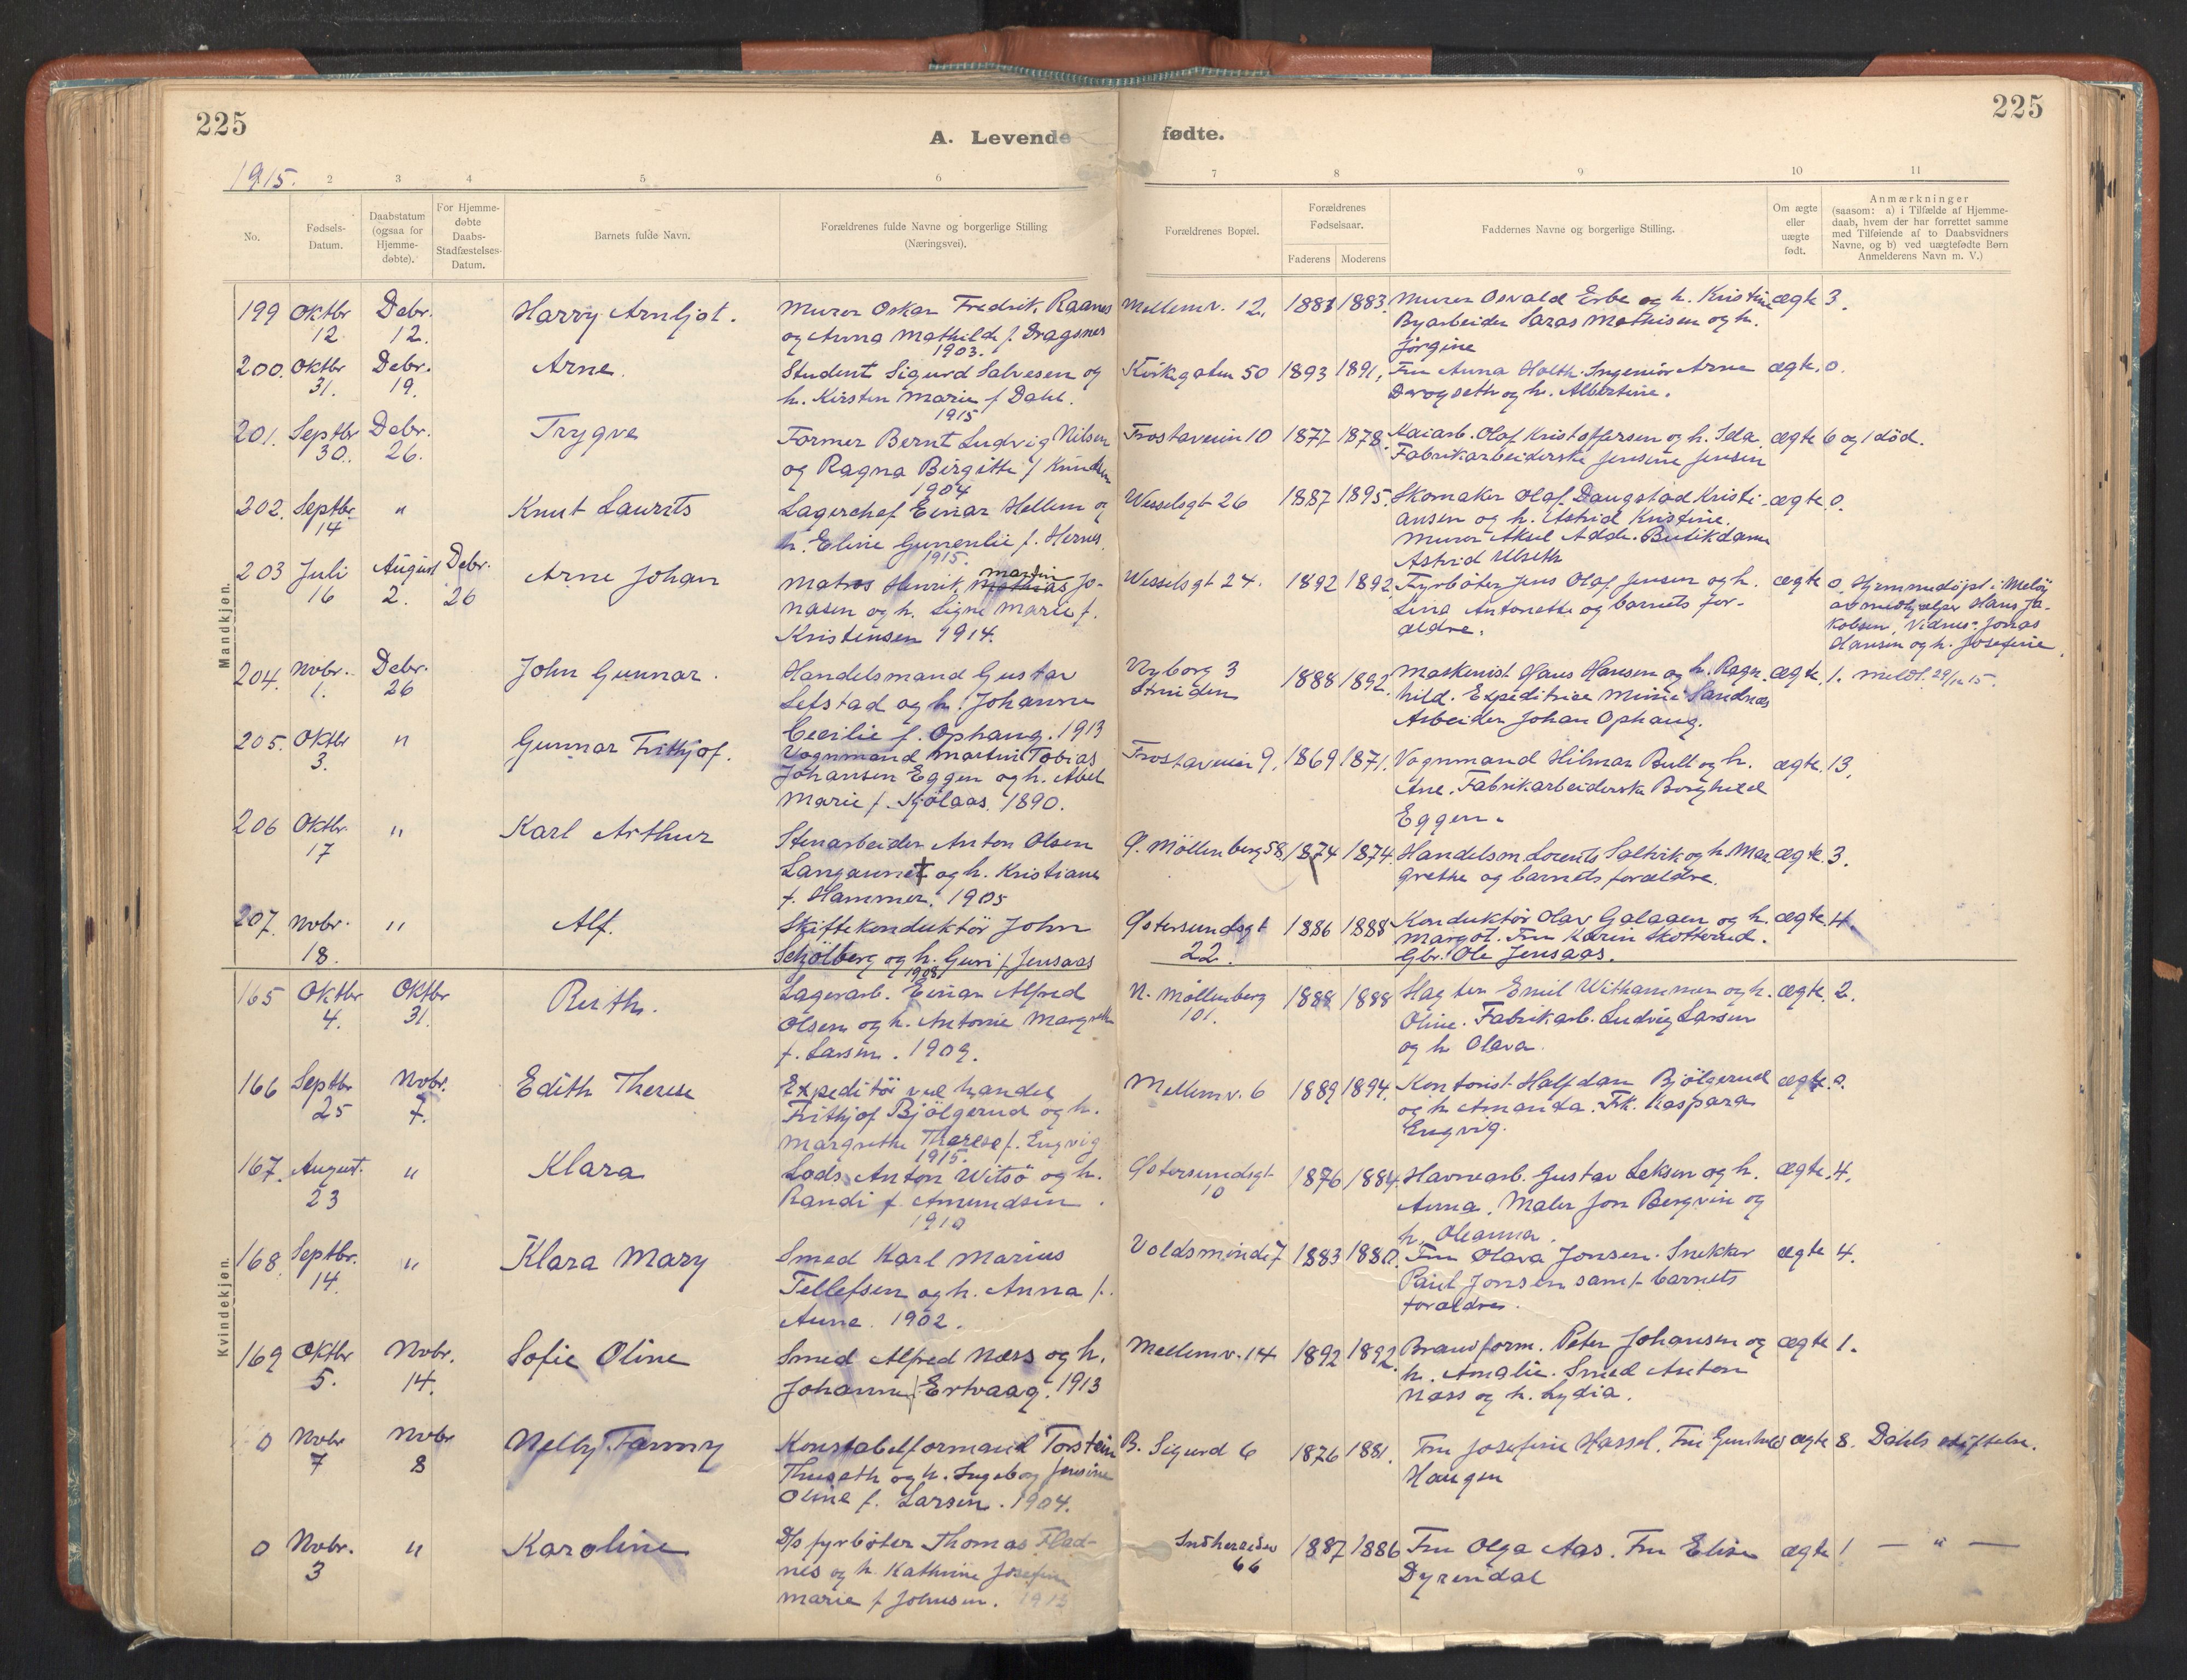 225
225
A. Levende fødte.
1915.
2 3 4 5 6 7 8 9 10 11
No.
Fødsels-
Datum.
Daabstatum
(ogsaa for
Hjemme-
døbte).
For Hjemme-
døbte
Daabs-
Stadfæstelses-
Datum.
Barnets fulde Navn.
Forældrenes fulde Navne og borgerlige Stilling
(Næringsvei).
Forældrenes Bopæl.
Forældrenes
Fødselsaar.
Faderens Moderens
Faddernes Navne og borgerlige Stilling.
Om ægte
eller
uægte
født.
Anmærkninger
(saasom: a) i Tilfælde af Hjemme-
daab, hvem der har forrettet samme
med Tilføiende af to Daabsvidners
Navne, og b) ved uægtefødte Børn
Anmelderens Navn m. V.)
Mandkjøn.
199 Oktbr 12 Debr. 12. Harry Arnljot.
Murer Oskar Fredrik Raanes
og Anna Mathilde f. Dragsnes
1903.
Mellemv. 12. 1881 1883.
Murer Osvald Erbe og h. Kristine
Byarbeider Saras Mathisen og h.
Jørgine
ægte 3.
200. Oktbr 31. Debr. 19. Arne.
Student Sigurd Salvesen og
h. Kirsten Marie f Dahl.
1915
Kirkegaten 50 1893 1891.
Fru Anna Holth. Ingeniør Arne
Drogseth og h. Albertine.
ægte. 0.
201. Septbr 30. Debr. 26. Trygve
Former Bernt Ludvig Nilsen
og Ragna Birgitte f Knudsen
1904
Frostaveien 10 1877 1878.
Kaiarb. Olaf Kristoffersen og h. Ida.
Fabrikarbeiderske Jensine Jensen
ægte 6 og 1 död.
202. Septbr. 14 " Knut Laurits
Lagerchef Einar Hellem og
h. Eline Gunenlie f. Hernes.
1915.
Wesselsgt 26 1887 1895.
Skomaker Olaf Daugstad Kristi-
ansen og h. Astrid Kristine.
Murer Aksel Adde. Butikdame
Astrid Ulseth
ægte. 0.
203 Juli 16 August 2. Debr. 26 Arne Johan
Martin
Matros Henrik Mathias Jo-
nasen og h. Signe Marie f.
Kristensen 1914.
Wesselsgt 24. 1892 1892.
Fyrbøter Jens Olaf Jensen og h.
Lina Antonette og barnets for-
ældre.
ægte 0. Hjemmedöpt i Melöy
av medhjælper Hans Ja-
kobsen. Vidner: Jonas
Hansen og h. Josefine.
204. Novbr. 1. Debr. 26 John Gunnar.
Handelsmand Gustav
Letstad og h. Johanne
Cecilie f. Ophaug. 1913
Nyborg 3
Strinden
1888 1892.
Maskenist Hans Hansen og h. Ragn-
hild. Expeditrice Minni Sandnes
Arbeider Johan Ophaug.
ægte. 1. meldt. 29/12 15.
205. Oktbr 3. " Gunnar Frithjof.
Vognmand Martin Tobias
Johansen Eggen og h. Abel
Marie f. Kjölaas. 1890.
Frostaveien 9. 1869 1871.
Vognmand Hilmar Bull og h.
Ane. Fabrikarbeiderske Borghild
Eggen.
ægte. 13.
206 Oktbr. 17 " Karl Arthur
Stenarbeider Anton Olsen
Langaunet og h. Kristiane
f. Hammer. 1905
Ø. Möllenberg 58. 1874 1874.
Handelsm. Lorents Saltvik og h. Mar
grethe og barnets forældre.
ægte. 3.
207. Novbr. 18. " Alf.
Skiftekonduktör John
Schjölberg og h. Guri f Jensaas
1908.
Østersundsgt
22.
1886 1888
Konduktör Olav Galaaen og h.
Margot. Fru Karin Skotterud.
Gbr. Ole Jensaas.
ægte. 4.
Kvindekjøn.
165 Oktbr 4. Oktbr 31. Ruth.
Lagerarb. Einar Alfred
Olsen og h. Antonie Margrethe
f. Larsen. 1909.
N. Möllenberg
101.
1888 1888
Slagter Emil Withammer og h.
Oline. Fabrikarb. Ludvig Larsen
og h Olava.
ægte. 2.
166 Septbr 25 Novbr. 7. Edith Therese
Expeditör ved handel
Frithjof Bjölgerud og h.
Margrethe Therese f. Engvig
1915.
Mellemv. 6 1889 1894.
Kontorist Halfdan Bjölgerud
og h Amanda. Frk. Kaspara
Engvig.
ægte. 0.
167. August. 23 " Klara
Lods Anton Witsö og h.
Randi f. Amundsen.
1910
Østersundsgt
10
1876 1884.
Havnearb. Gustav Leksen og h.
Anna. Maler Jon Bergvin og
h. Oleanna.
ægte. 4.
168. Septbr. 14. " Klara Mary
Smed Karl Marius
Tellefsen og h. Anna f.
Aune. 1902.
Voldsminde 7 1883 1880.
Fru Olava Jonsen. Snekker
Paul Jonsen samt barnets
forældre.
ægte 4.
169 Oktbr 5. Novbr. 14. Sofie Oline
Smed Alfred Næss og h.
Johanne f Ertvaag. 1913
Mellemv. 14 1892 1892.
Brandform. Peter Johansen og
h. Amalie. Smed Anton
Næss og h. Lydia.
ægte 1.
0 Novbr 7 Novbr 8 Nelly Fanny
Konstabelformand Torstein
Thuseth og h. Ingeborg Jensine
Oline f. Larsen. 1904.
B. Sigurd 6 1876 1881.
Fru Josefine Hassel. Fru Gunhild
Haugen
ægte 8. Dahls stiftelse.
0 Novbr. 3 " Karoline
D/s fyrbøter Thomas Flad-
nes og h. Kathrine Josefine
Marie f Johnsen. 1913
Indherredsv
66
1887 1886
Fru Olga Aas. Fru Elise
Dyrendal
ægte 1 — " —